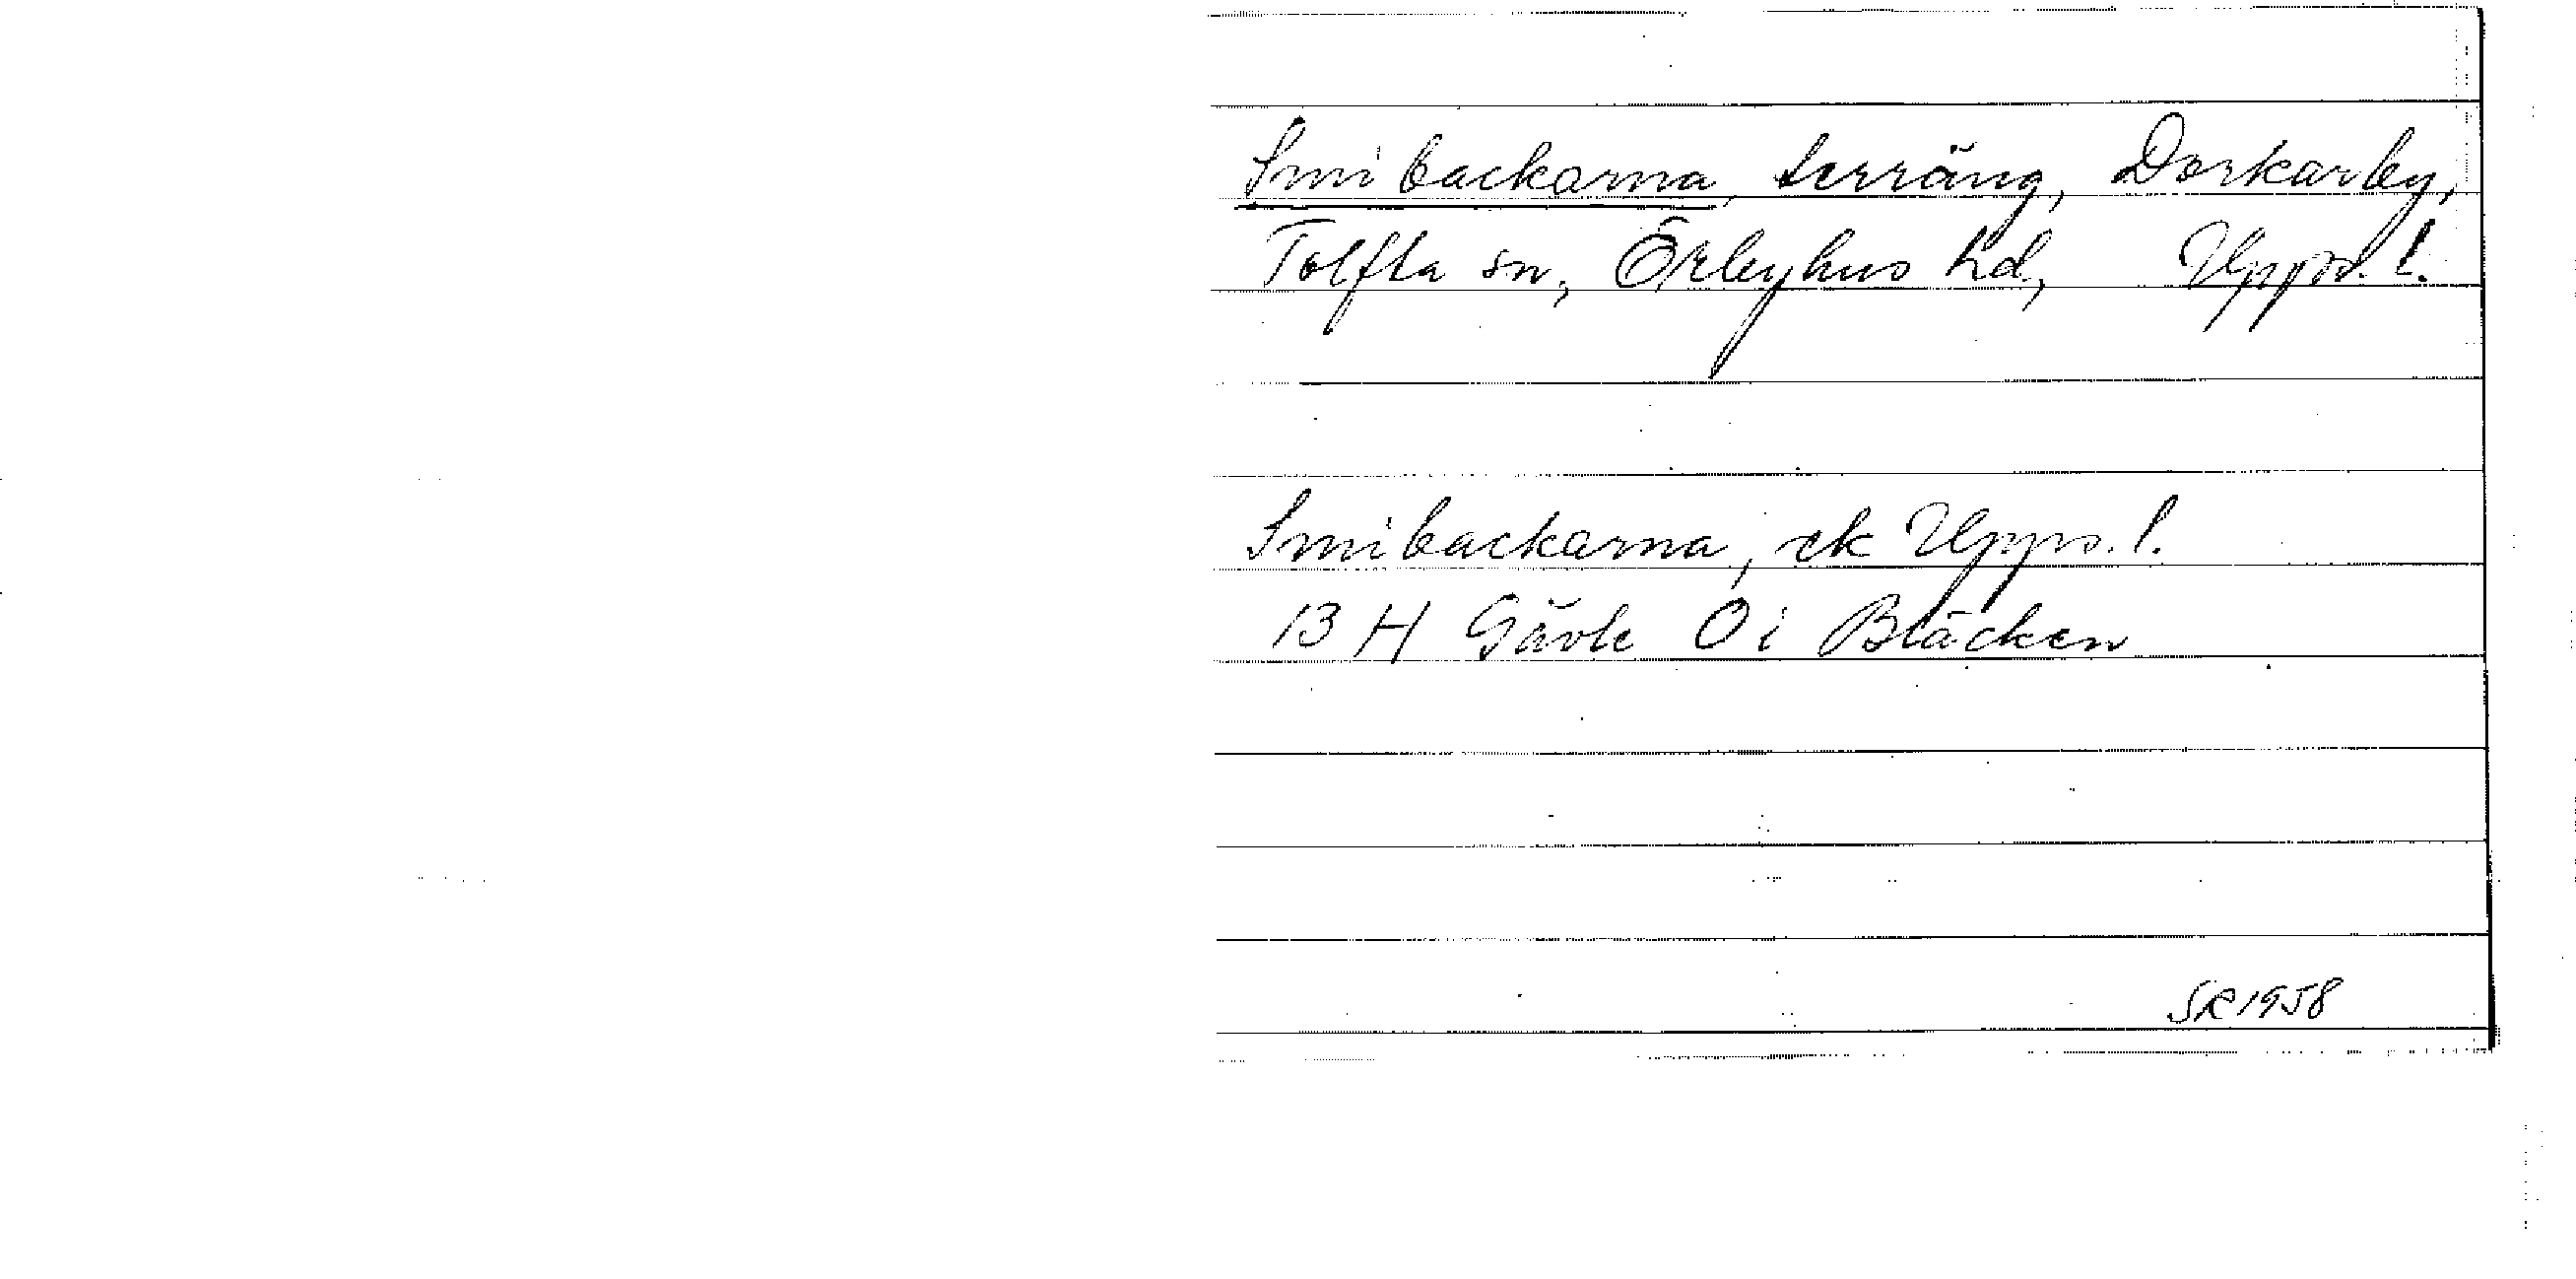 Smibackarna, terräng, Dorkarby,
Tolfta sn, Örbyhus hd, Upps. l.
Smibackarna, ek Upps. l.
13 H Gävle 0 i Bläcken
SR 1958